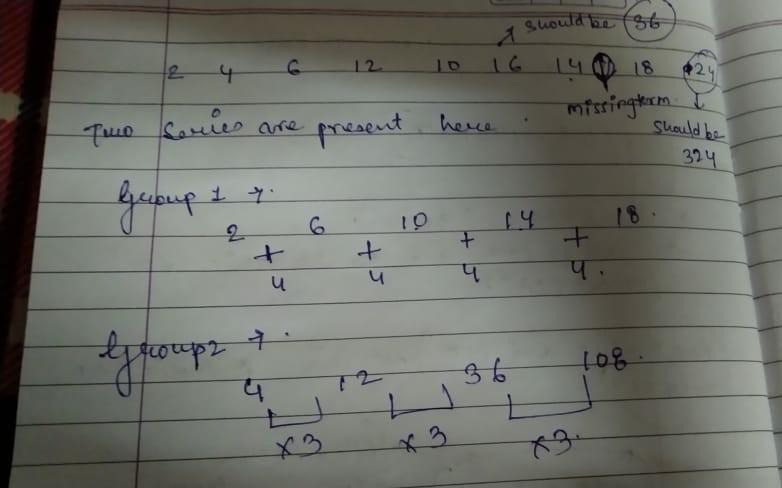 ↗ should be 36
2 4 6 12 10 16 14 18 24
missing term ↓
Two Series are present here.
should be
324
Group 1 →.
2 6 10 14 18.
+ + + +
4 4 4 4.
Group 2 →.
4 12 36 108.
×3 ×3 ×3.